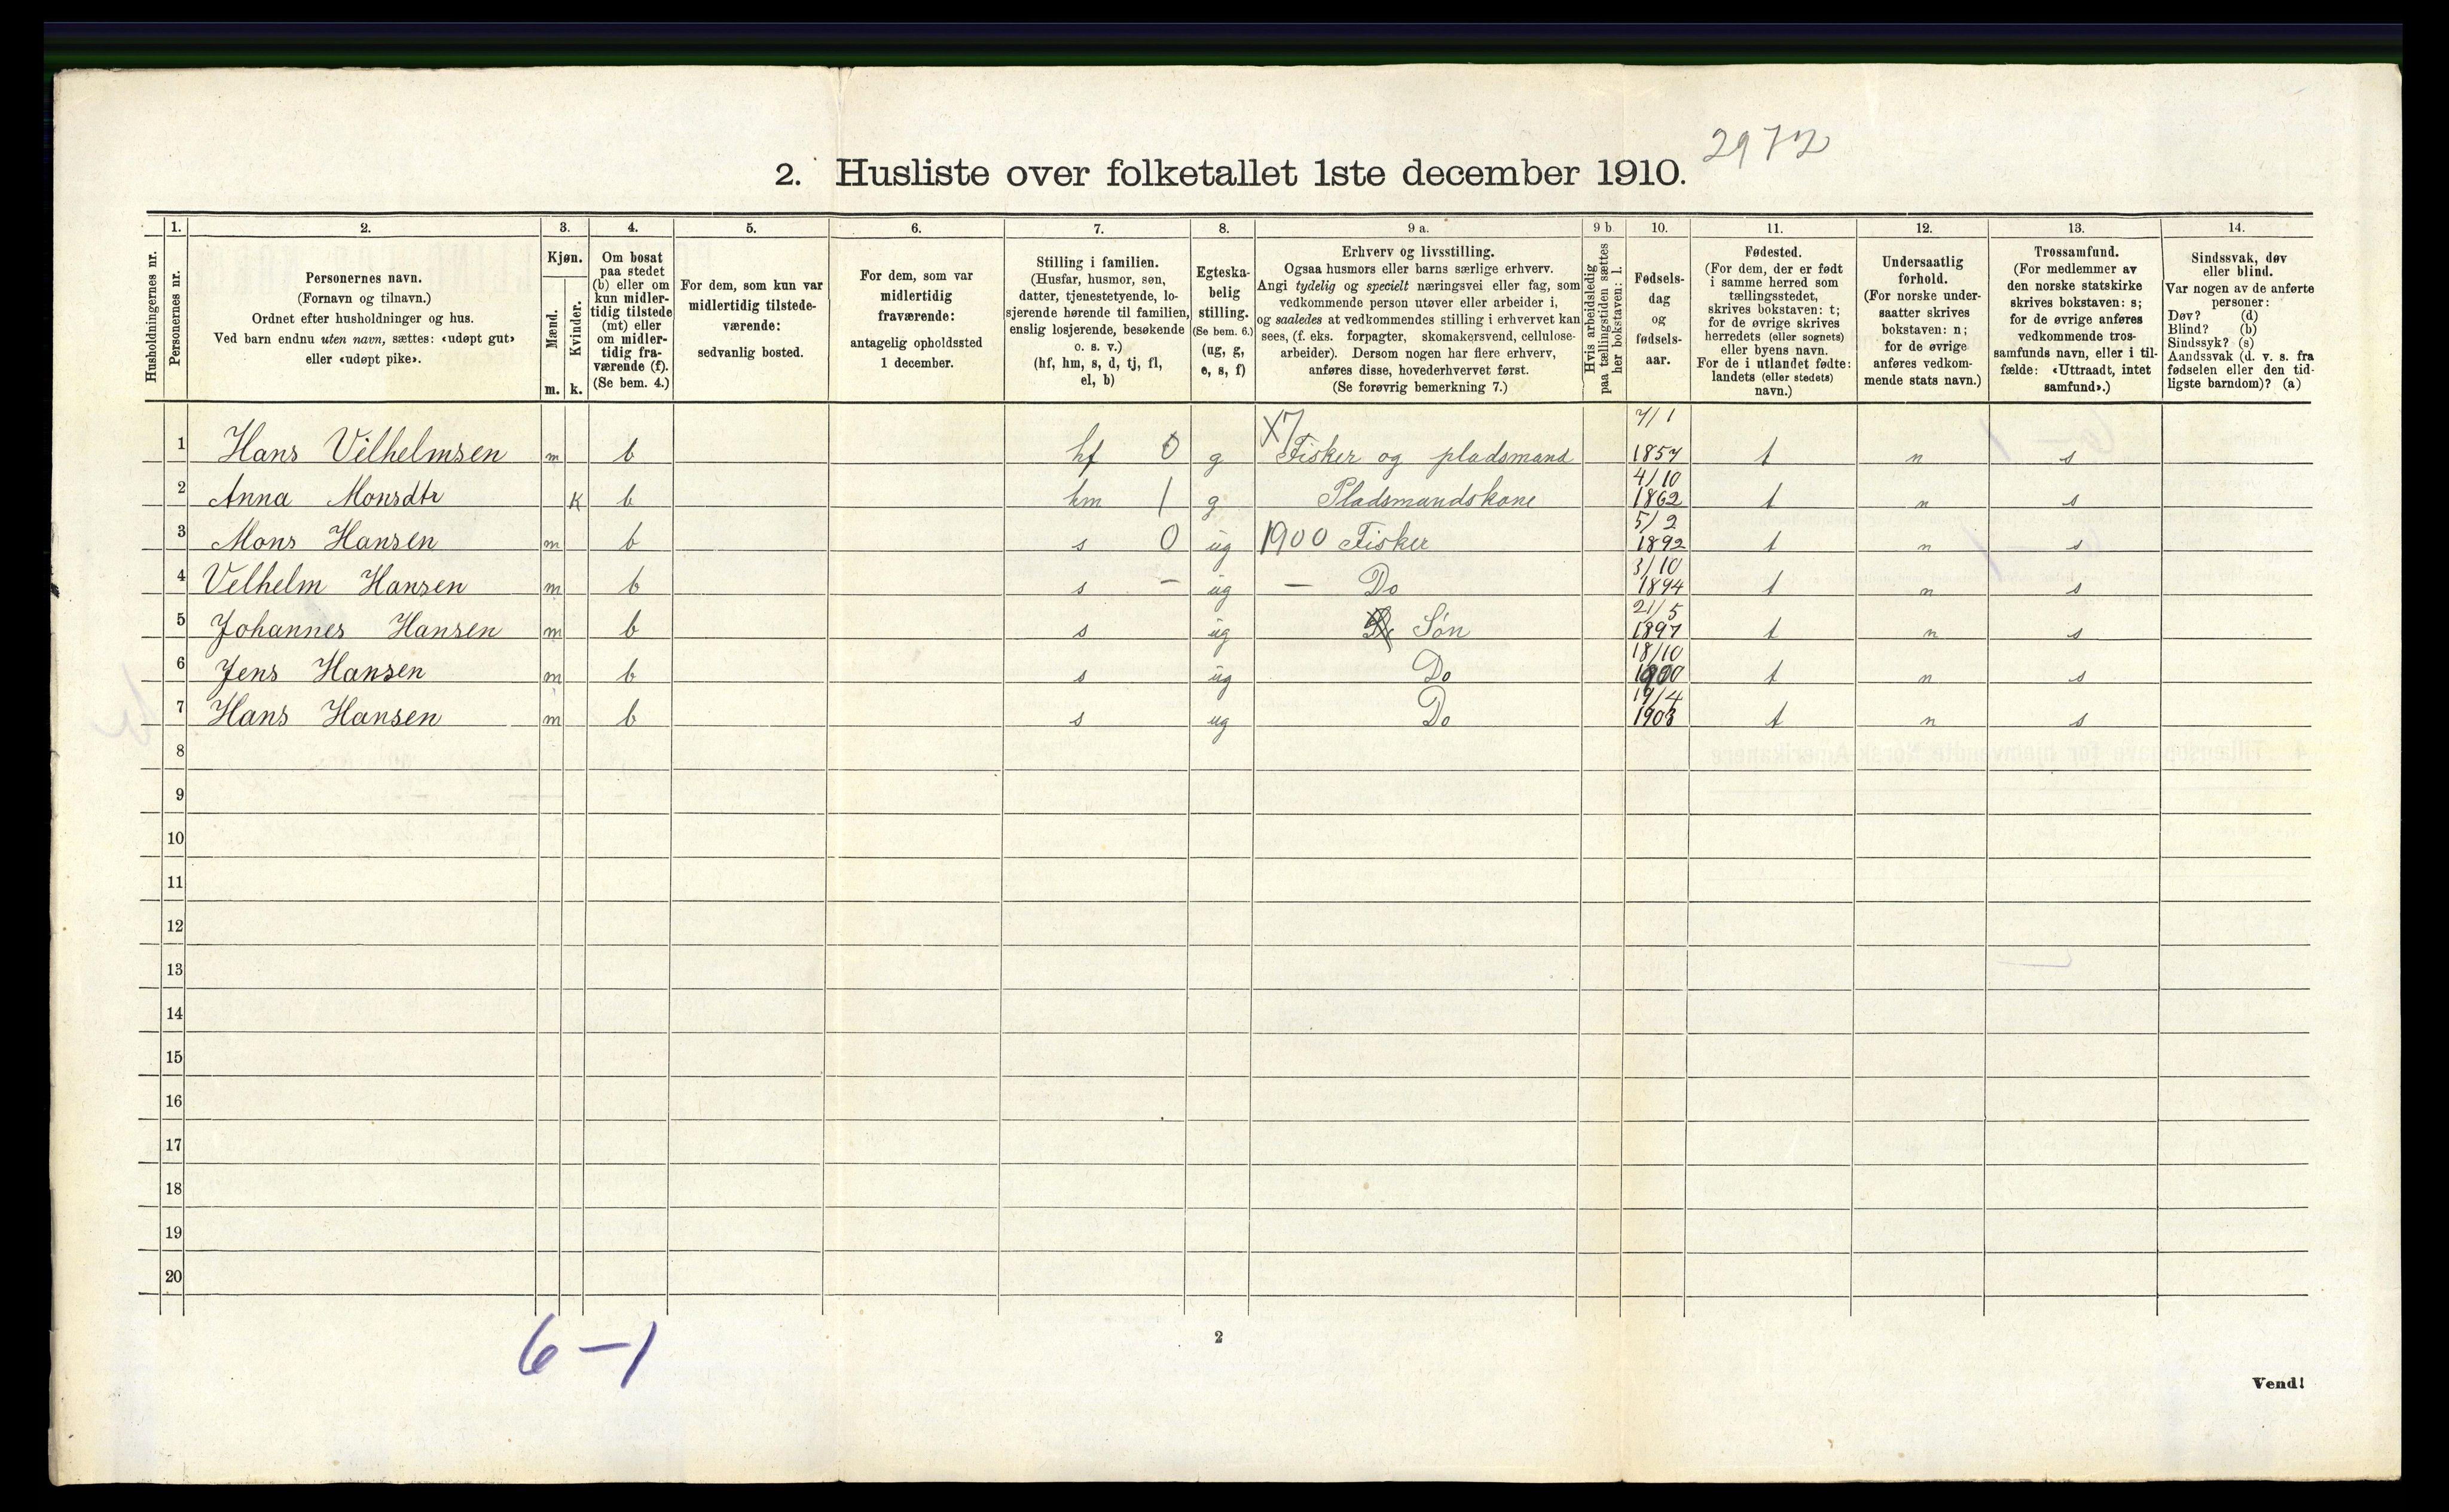 2972
2. Husliste over folketallet 1ste december 1910.
Husholdningernes nr.
1.
Personernes nr.
2.
Personernes navn.
(Fornavn og tilnavn.)
Ordnet efter husholdninger og hus.
Ved barn endnu uten navn, sættes: «udøpt gut»
eller «udøpt pike».
3.
Kjøn.
Mænd.
m.
Kvinder.
k.
4.
Om bosat
paa stedet
(b) eller om
kun midler-
tidig tilstede
(mt) eller
om midler-
tidig fra-
værende (f).
(Se bem. 4.)
5.
For dem, som kun var
midlertidig tilstede-
værende:
sedvanlig bosted.
6.
For dem, som var
midlertidig
fraværende:
antagelig opholdssted
1 december.
7.
Stilling i familien.
(Husfar, husmor, søn,
datter, tjenestetyende, lo-
sjerende hørende til familien,
enslig losjerende, besøkende
o. s. v.)
(hf, hm, s, d, tj, fl,
el, b)
8.
Egteska-
belig
stilling.
(Se bem. 6.)
(ug, g,
e, s, f)
9 a.
Erhverv og livsstilling.
Ogsaa husmors eller barns særlige erhverv.
Angi tydelig og specielt næringsvei eller fag, som
vedkommende person utøver eller arbeider i,
og saaledes at vedkommendes stilling i erhvervet kan
sees, (f. eks. forpagter, skomakersvend, cellulose-
arbeider). Dersom nogen har flere erhverv,
anføres disse, hovederhvervet først.
(Se forøvrig bemerkning 7.)
9 b.
Hvis arbeidsledig
paa tællingstiden sættes
her bokstaven: l.
10.
Fødsels-
dag
og
fødsels-
aar.
11.
Fødested.
(For dem, der er født
i samme herred som
tællingsstedet,
skrives bokstaven: t;
for de øvrige skrives
herredets (eller sognets)
eller byens navn.
For de i utlandet fødte:
landets (eller stedets)
navn.)
12.
Undersaatlig
forhold.
(For norske under-
saatter skrives
bokstaven: n;
for de øvrige
anføres vedkom-
mende stats navn.)
13.
Trossamfund.
(For medlemmer av
den norske statskirke
skrives bokstaven: s;
for de øvrige anføres
vedkommende tros-
samfunds navn, eller i til-
fælde: «Uttraadt, intet
samfund».)
14.
Sindssvak, døv
eller blind.
Var nogen av de anførte
personer:
Døv? (d)
Blind? (b)
Sindssyk? (s)
Aandssvak (d. v. s. fra
fødselen eller den tid-
ligste barndom)? (a)
1 Hans Vilhelmsen m b hf 0 g X7 Fisker og pladsmand 7/1 1857 t n s
2 Anna Monsdtr k b hm 1 g Pladsmandskone 4/10 1862 t n s
3 Mons Hansen m b s 0 ug 1900 Fisker 5/2 1892 t n s
4 Velhelm Hansen m b s – ug – Do 3/10 1894 t n s
5 Johannes Hansen m b s ug Søn 21/5 1897 t n s
6 Jens Hansen m b s ug Do 18/10 1900 t n s
7 Hans Hansen m b s ug Do 19/4 1903 t n s
8
9
10
11
12
13
14
15
16
17
18
19
20
6-1
2
Vend!